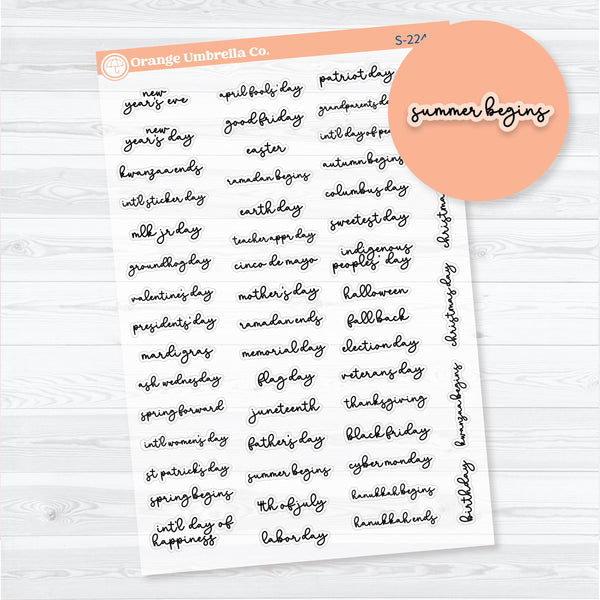 Orange Umbrella Co.
S-224
summer begins
new
year's eve
new
year's day
kwanzaa ends
int'l sticker day
mlk jr day
groundhog day
valentine's day
presidents' day
mardi gras
ash wednesday
spring forward
int'l women's day
st patrick's day
spring begins
int'l day of
happiness
april fools' day
good friday
easter
ramadan begins
earth day
teacher appr day
cinco de mayo
mother's day
ramadan ends
memorial day
flag day
juneteenth
father's day
summer begins
4th of july
labor day
patriot day
grandparents day
int'l day of
autumn begins
columbus day
sweetest day
indigenous
peoples' day
halloween
fall back
election day
veterans day
thanksgiving
black friday
cyber monday
hanukkah begins
hanukkah ends
christmas
christmas day
kwanzaa begins
birthday